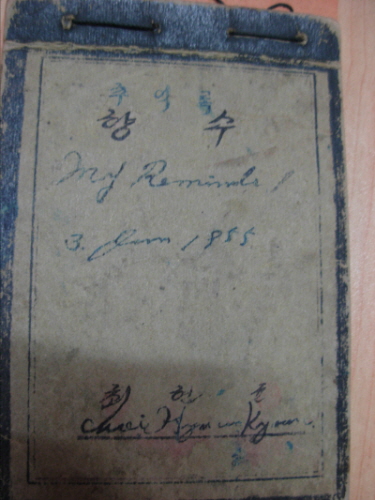 추억록
향수
My Reminds!
3. Jun 1955
최현
Choi Hyun Kyun.